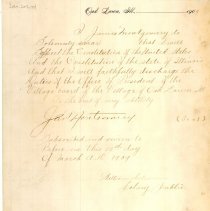 Oak Lawn, Ill. 190
I James Montgomery do
Solemnly swear that I will
Support the Constitution of the United States
And the Constitution of the state of Illinois
And that I will faithfully discharge the
duties of the Office of President of the
Village board of the Village of Oak Lawn Ill
to the best of my ability
Jas Montgomery
Subscribed and sworn to
before me this day
of March A.D. 1909
Notary Public